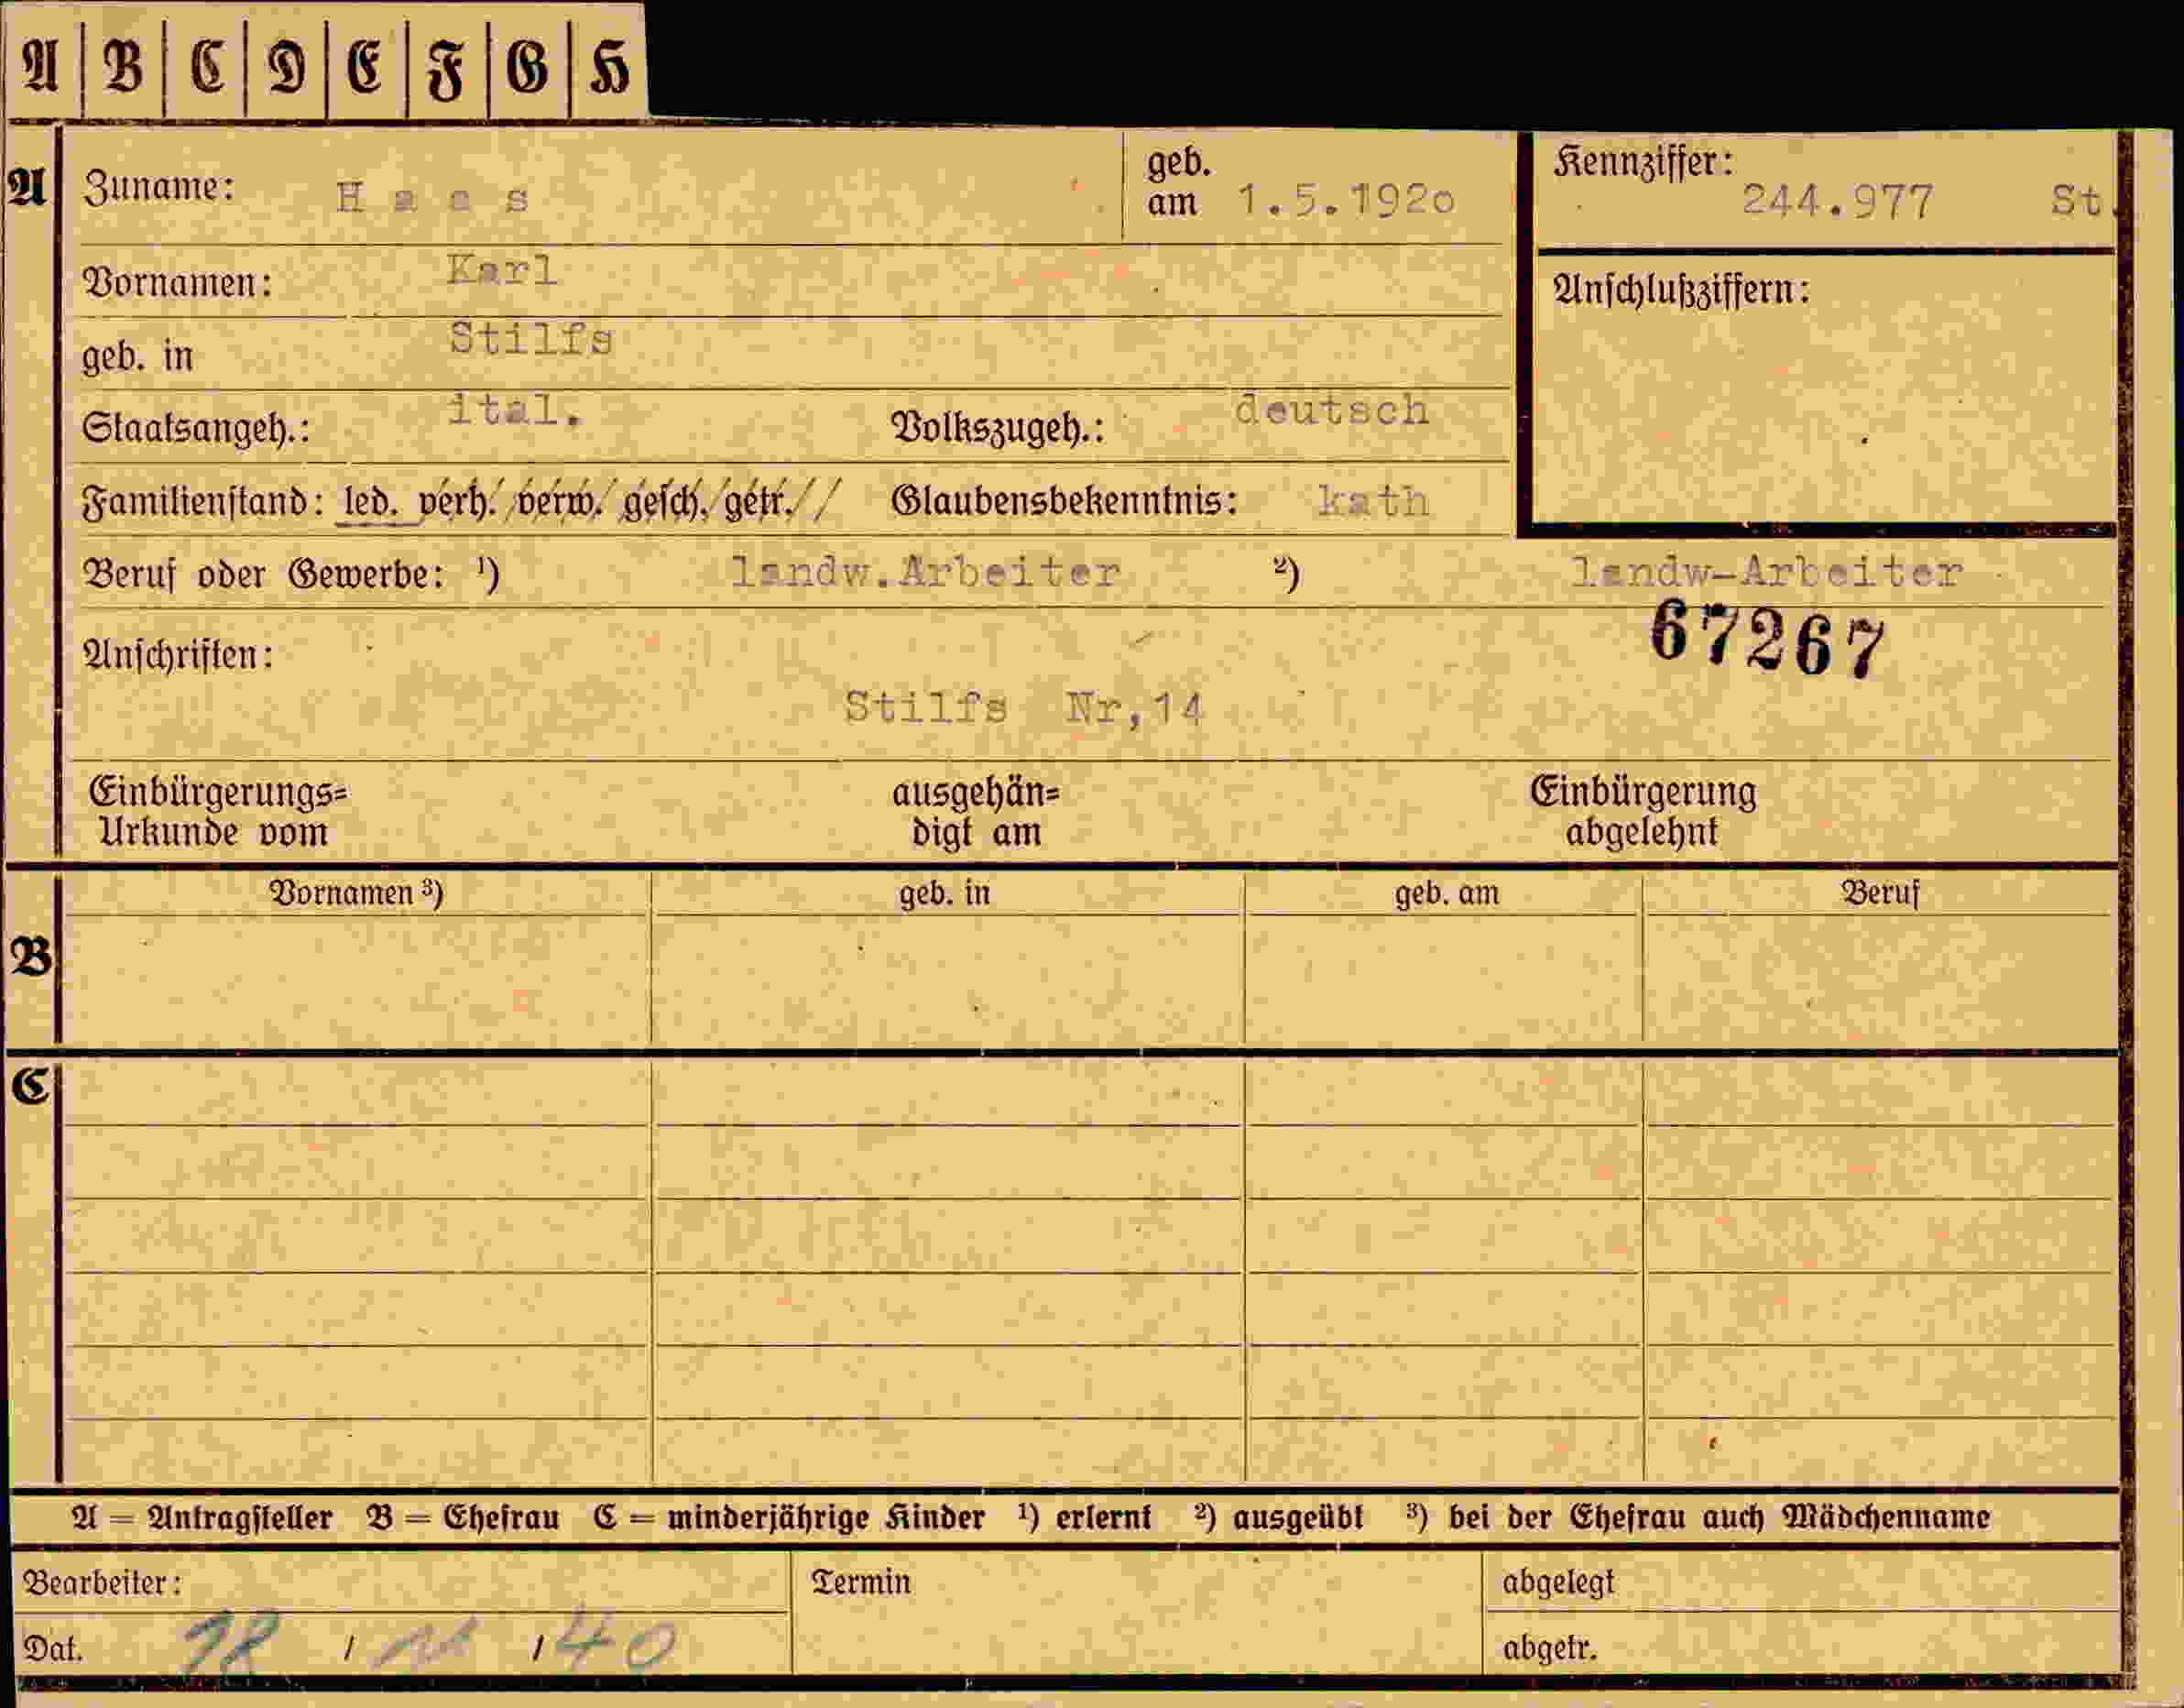 A B C D E F G H
A Zuname: Haas geb. am 1.5.1920 Kennziffer: 244.977 St.
Vornamen: Karl Anschlußziffern:
geb. in Stilfs
Staatsangeh.: ital. Volkszugeh.: deutsch
Familienstand: led. verh. verw. gesch. getr. // Glaubensbekenntnis: kath
Beruf oder Gewerbe: ¹) landw.Arbeiter ²) landw-Arbeiter
67267
Anschriften:
Stilfs Nr,14
Einbürgerungs= ausgehän= Einbürgerung
Urkunde vom digt am abgelehnt
Vornamen ³) geb. in geb. am Beruf
B
C
A = Antragsteller B = Ehefrau C = minderjährige Kinder ¹) erlernt ²) ausgeübt ³) bei der Ehefrau auch Mädchenname
Bearbeiter: Termin abgelegt
Dat. 18 / / 40 abgetr.